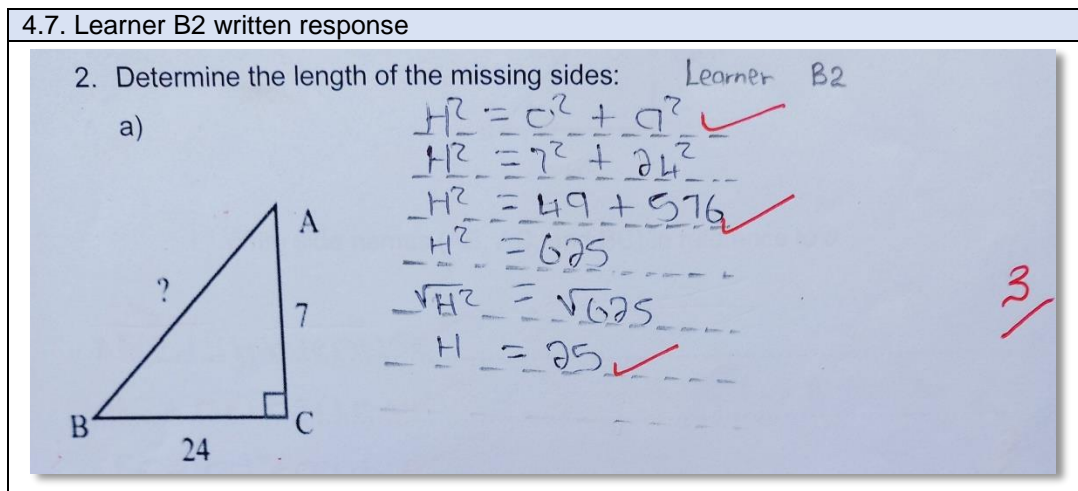 4.7. Learner B2 written response
2. Determine the length of the missing sides: Learner B2
a)
H² = o² + a²
H² = 7² + 24²
H² = 49 + 576
H² = 625
√H² = √625
H = 25
3
A
?
7
B
C
24